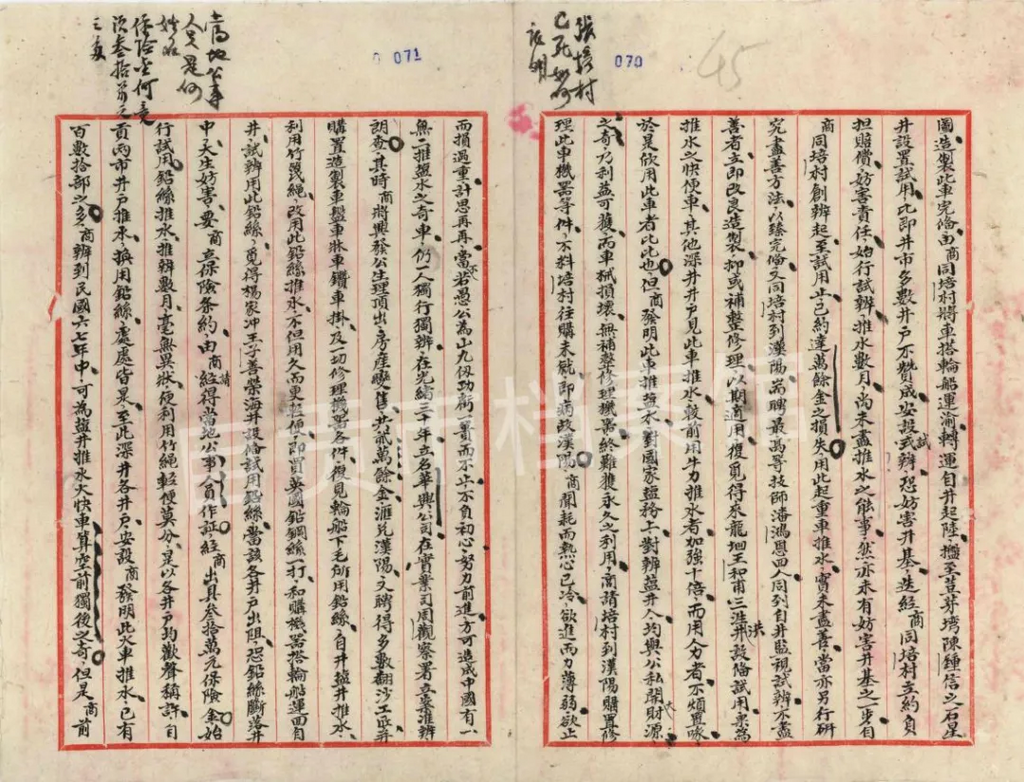 張培村
已死如何
証明
070
45
圖造製此車完俻由商同培村將車搭輪船運渝轉運自井起陸擡至荳芽塆陳鍾信之石星
井設置試用比即井市多數井戶不贊成安設試辦恐妨害井基迭經商同培村立約負
担賠償妨害責任始行試辦推水數月尚未盡推水之能事然亦未有妨害井基之一步自
商同培村創辦起至試用止已約達萬餘金之損失用此起重車推水實未盡善當亦另行研
究盡善方法以臻完俻又同培村到漢陽耑聘最高等技師潘鴻恩四人同到自井監視試辦不盡
善者立即改良造製抑或補整修理以期適用復覓得來龍坳王和甫三涯井設俻試用秉為
推水之快便車其他深井井戶見此車推水較前用牛力推水者加強十倍而用人力者不煩置啄
於是欣用此車者比比也但商發明此車推塩水對國家塩務上對辦塩井人均與公私開財源
之奇乃利益可獲而車械損壞無補整修理機器終難獲永久之利用商請培村到漢陽購置修
理此車機器等件不料培村往購未旋即病故漢陽商聞耗而熱心已冷欲進而力薄弱欲止
071
當地公事
人是何
姓名
保險金何竟
須叁拾萬元
之多
而損過重計思再再當若愚公為山九仭功虧一簣而不止不負初心努力前進方可造成中國有一
無二推塩水之奇車仍一人獨行獨辦在光緒三十年立名華興公司在實業司周觀察署立案准辦
朗查其時商將興發公生理頂出房產變售共貳萬餘金滙兌漢陽又聘得多數翻沙工匠并
購置造製車盤車牀車鑽車掛及一切修理機器各件復見輪船下乇所用鉛絲自井塩井推水
利用竹篾繩改用此鉛絲推水不但用久而更輕便即買英國鉛鋼絲一打和購機器搭輪船運回自
井試辦用此鉛絲覓得楊家冲王子善榮海井設俻試用鉛絲當該各井戶出阻恐鉛絲斷落井
中大生妨害要商立保險条約由商請經得當地公事人員作証經商出具叁拾萬元保險金始
行試用鉛絲推水推辦數月毫無異狀便利用竹繩輕便莫分是以各井戶均歡聲稱許自
貢兩市井戶推水換用鉛絲處處皆是至此深井各井戶安設商發明此大車推水已有
百數拾部之多商辦到民國六七年中可為塩井推水大快車算空前獨後之奇但是商前